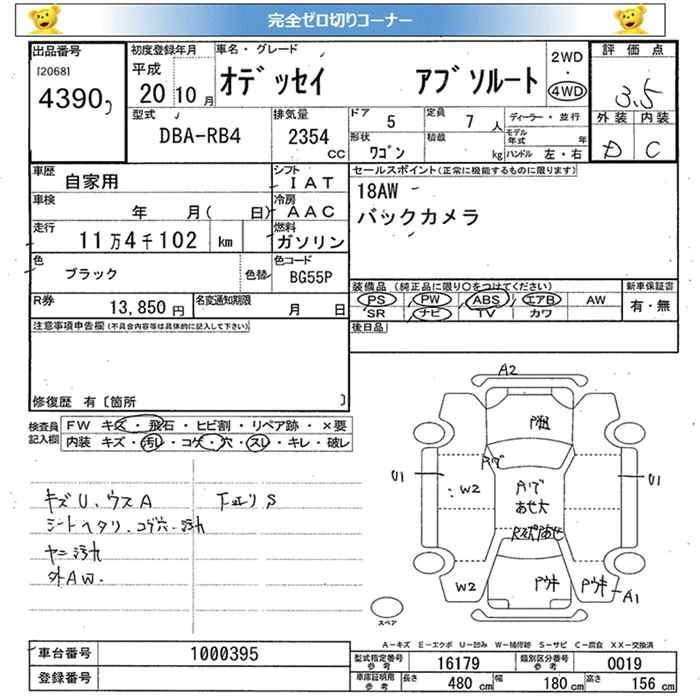 完全ゼロ切りコーナー
出品番号
[2068]
4390
初度登録年月
平成
20 10月
車名・グレード
オデッセイ アブソルート
2WD
・
4WD
評価点
3.5
外装 内装
D C
型式
DBA-RB4
排気量
2354
CC
ドア
5
定員
7人
ディーラー・並行
モデル年式 年
形状
ワゴン
積載
kg
ハンドル 左・右
車歴
自家用
シフト
IAT
車検
年 月( 日)
冷房
AAC
走行
11万4千102 km
燃料
ガソリン
色
ブラック
色替
色コード
BG55P
R券
13,850円
名変通知期限
月 日
セールスポイント(正常に機能するものに限ります)
18AW
バックカメラ
装備品 (純正品に限り○をつけてください)
PS PW ABS エアB AW
SR ナビ TV カワ
新車保証書
有・無
後日品
注意事項申告欄(不具合内容等は具体的に記入して下さい)
修復歴 有〔箇所 〕
検査員
記入欄
FW キズ・飛石・ヒビ割・リペア跡・×要
内装 キズ・汚レ・コゲ・穴・スレ・キレ・破レ
キズU、ウスA
下エリS
シートヘタリ、コゲ穴、汚れ
ヤニ汚れ
外AW.
A2
U1
W2
Aソデ
あせ大
U1
W2
A1
スペア
A-キズ E-エクボ U-凹み W-補修跡 S-サビ C-腐食 XX-交換済
車台番号
1000395
登録番号
型式指定番号
参考
16179
類別区分番号
参考
0019
車庫証明用
参考
長さ
480cm
幅
180cm
高さ
156cm